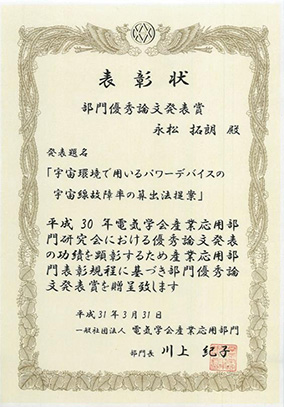 表彰状
部門優秀論文発表賞
永松 拓朗 殿
発表題名
「宇宙環境で用いるパワーデバイスの
宇宙線故障率の算出法提案」
平成30年電気学会産業応用部
門研究会における優秀論文発表
の功績を顕彰するため産業応用部
門表彰規程に基づき部門優秀論
文発表賞を贈呈致します
平成31年3月31日
一般社団法人 電気学会産業応用部門
部門長 川上 紀子